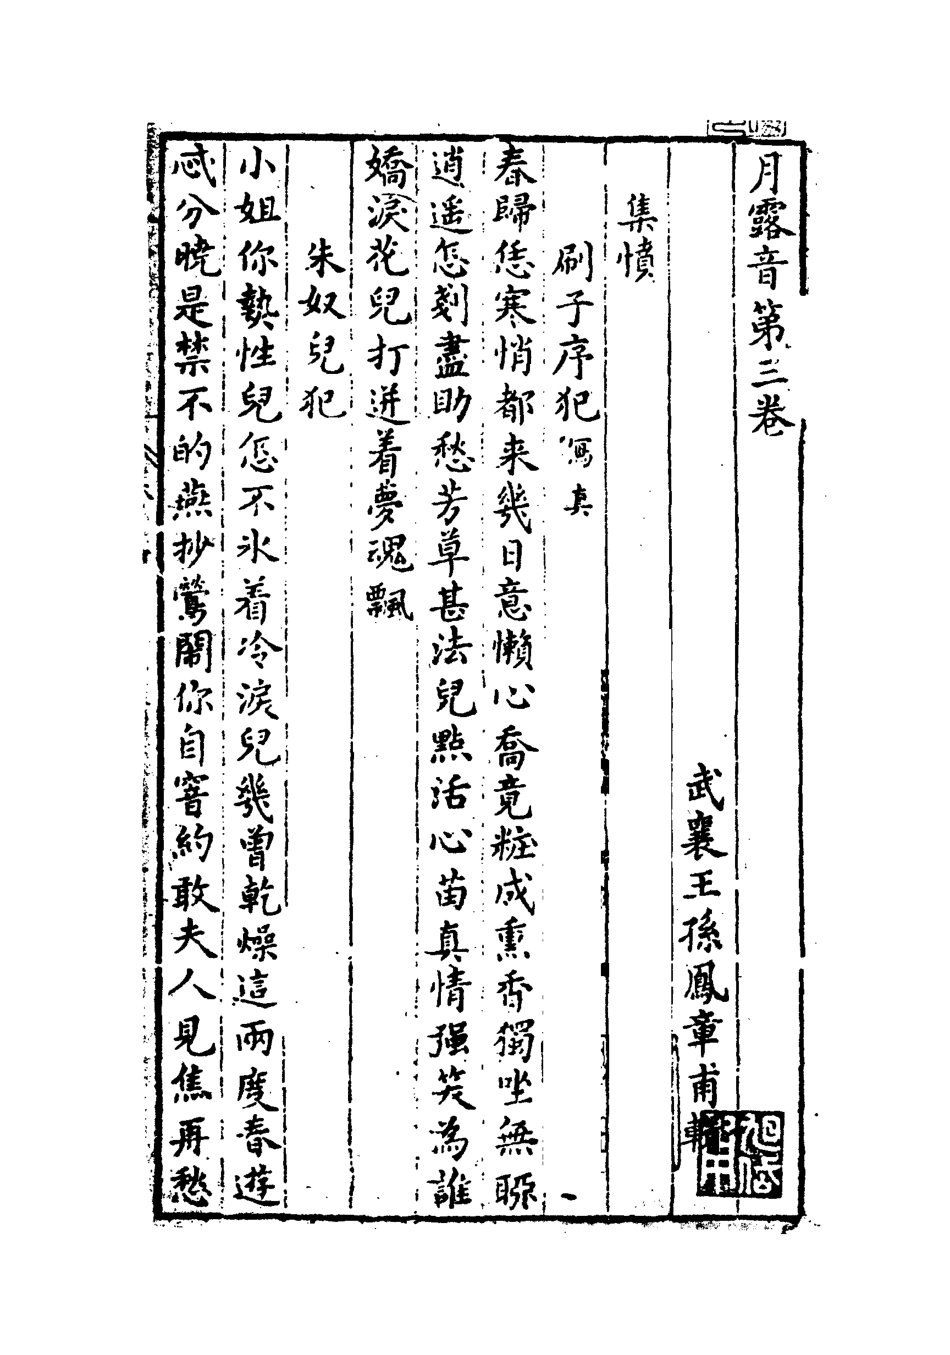 月露音第三卷
武襄王孫鳳章甫輯
集憤
刷子序犯 寫真
春歸恁寒悄都来幾日意懶心喬竟粧成熏香獨坐無聊
逍遥怎剗盡助愁芳草甚法兒點活心苗真情强笑為誰
嬌淚花兒打迸着夢魂飄
朱奴兒犯
小姐你熱性兒怎不氷着冷淚兒幾曾乾燥這兩度春遊
忒分曉是禁不的燕抄鶯鬧你自窨約敢夫人見焦再愁